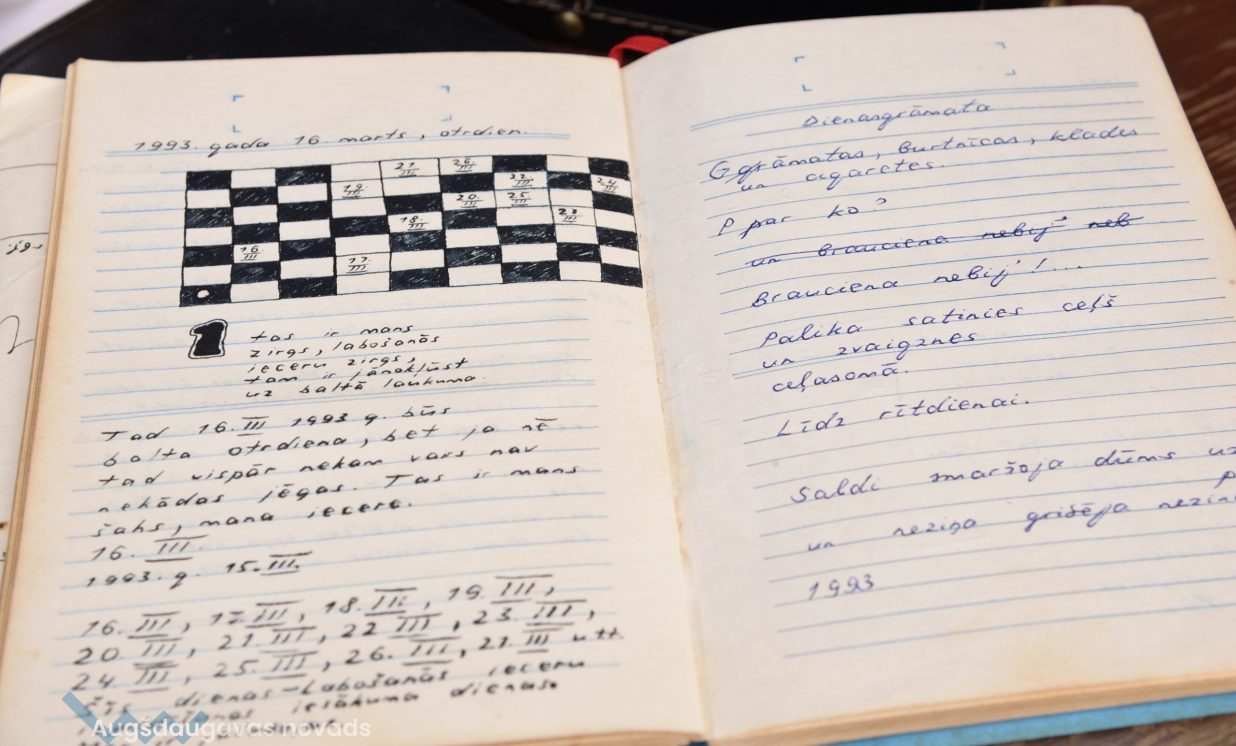 1993. gada 16. marts, otrdien.
21. III 26. III
19. III 22. III 24. III
20. III 25. III
18. III 23. III
16. III
17. III
1
tas ir mans
zirgs, labošanās
ieceru zirgs,
tam ir jānokļūst
uz baltā laukuma.
Tad 16. III 1993 g. būs
balta otrdiena, bet ja nē
tad vispār nekam vairs nav
nekādas jēgas. Tas ir mans
šahs, mana iecere.
16. III.
1993. g. 15. III.
16. III, 17. III, 18. III, 19. III,
20. III, 21. III, 22. III, 23. III,
24. III, 25. III, 26. III, 27. III utt.
šīs dienas-labošanās ieceru
iesākuma dienas.
Dienasgrāmata
Ggrāmatas, burtnīcas, klades
un cigaretes.
P par ko?
un brauciena nebij neb
Brauciena nebij! ...
Palika satinies ceļš
un zvaigznes
ceļasomā.
Līdz rītdienai.
Saldi smaržoja dūms
un neziņa
1993
Augšdaugavas novads